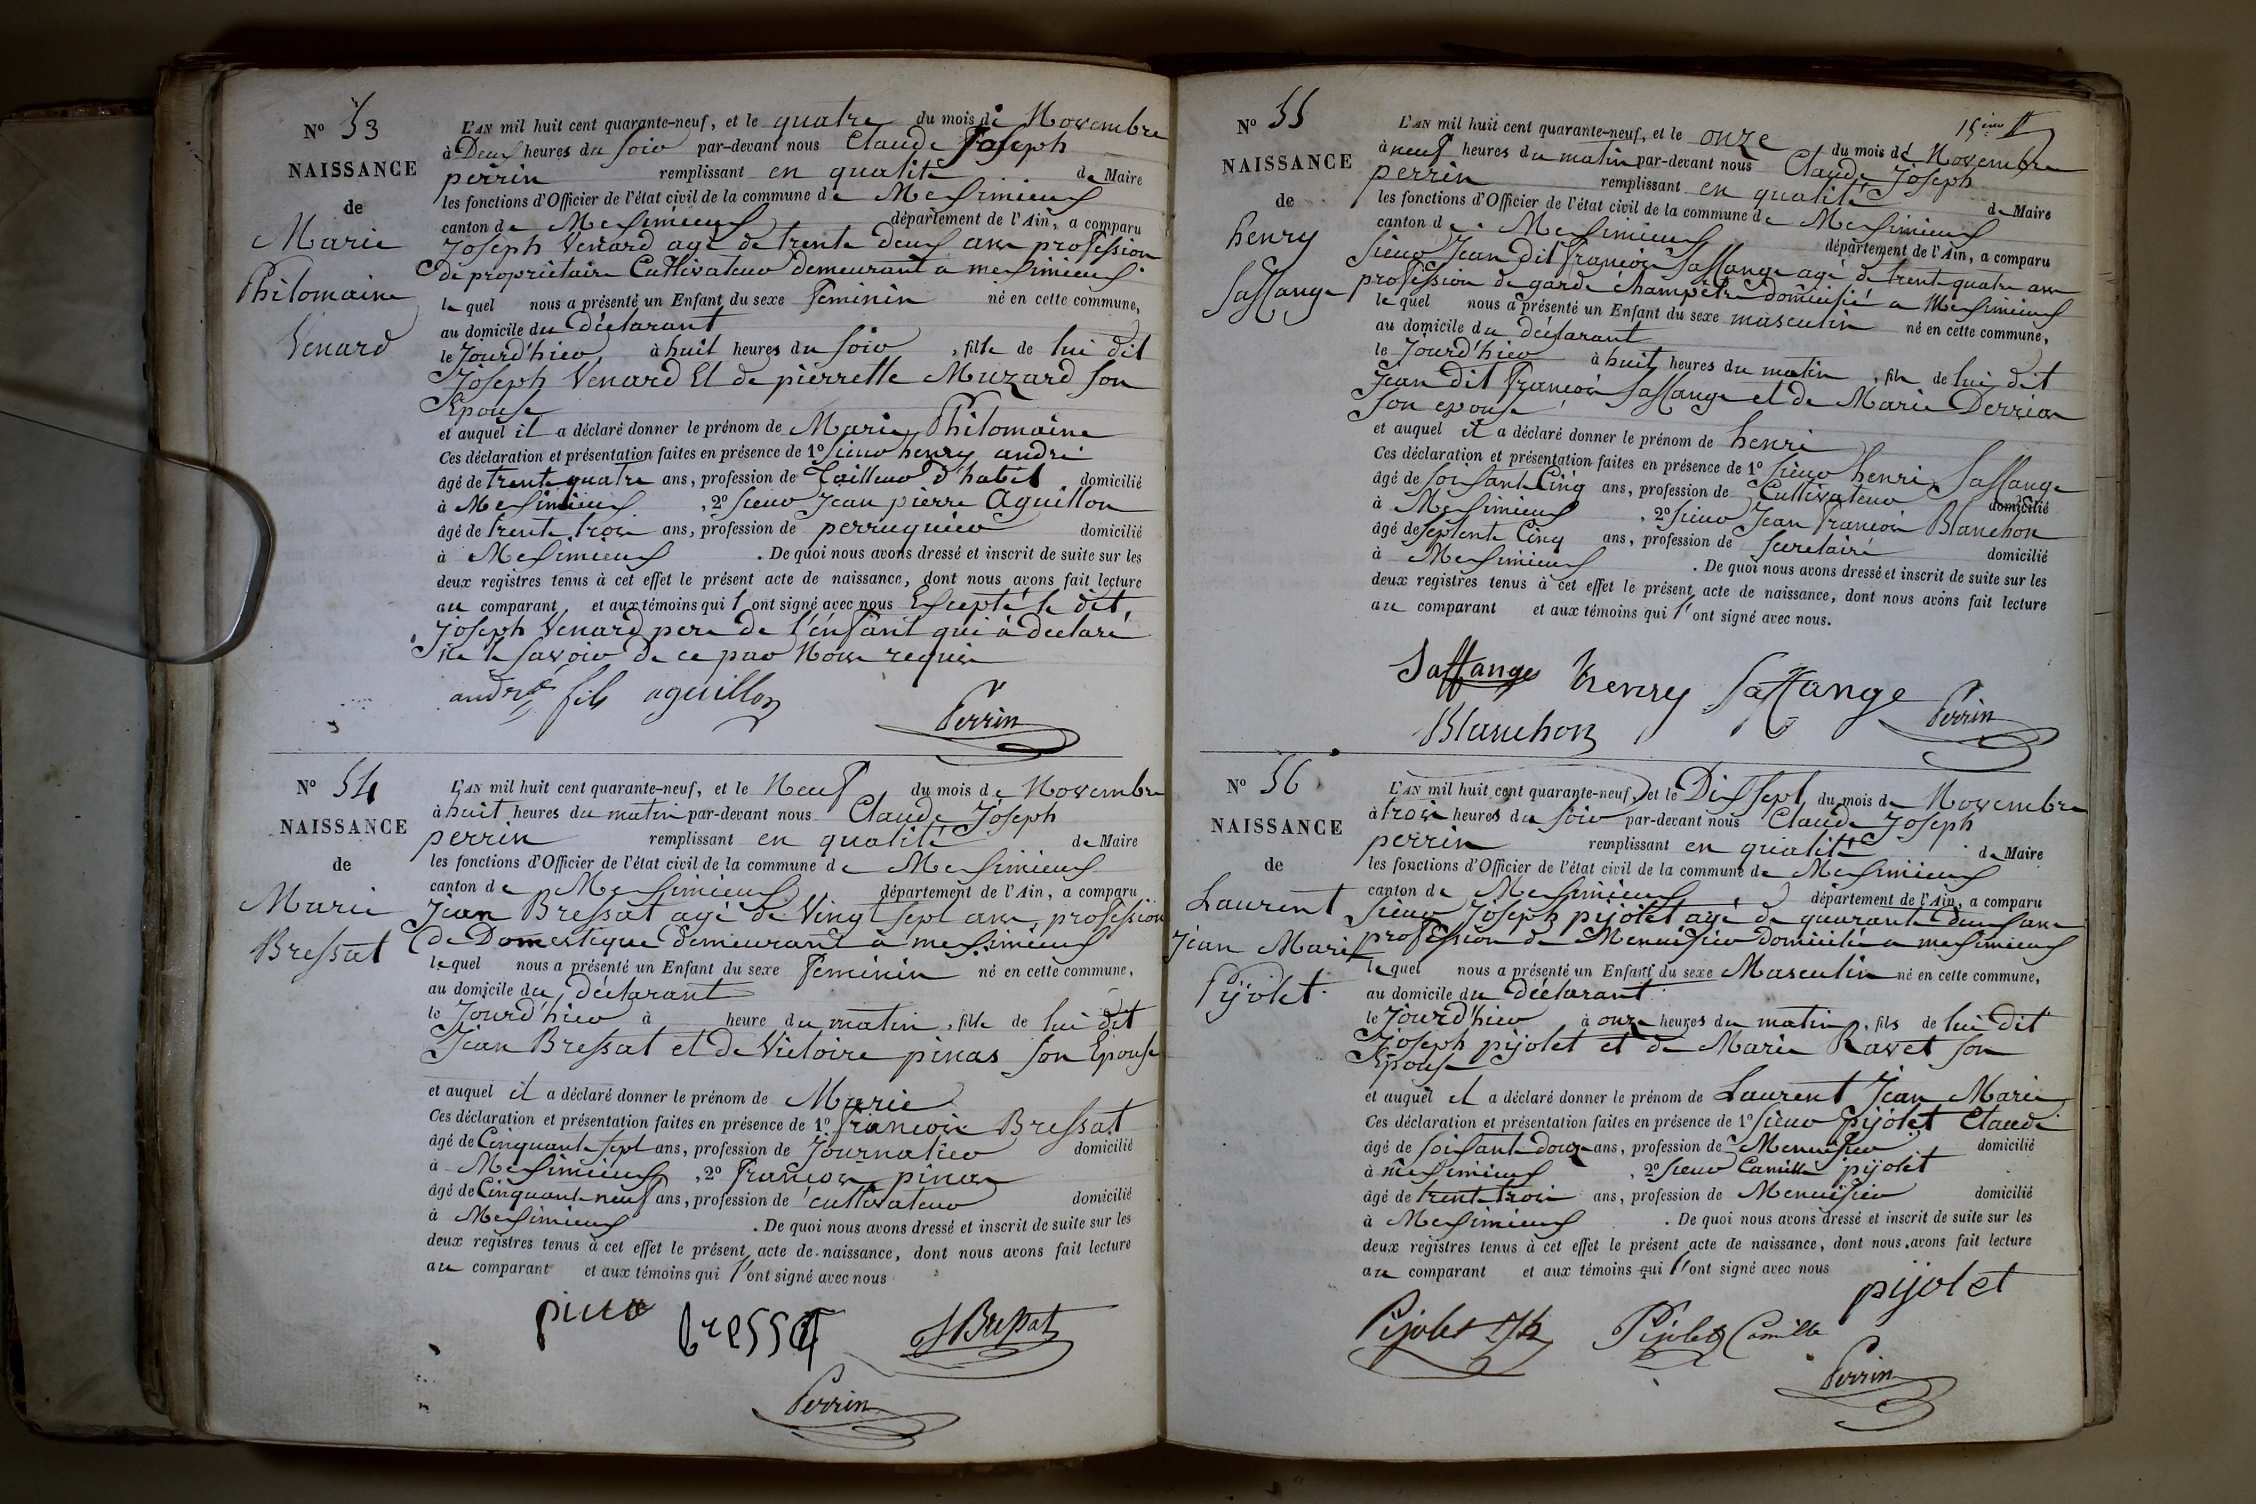 N° 53
NAISSANCE
de
Marie
Philomaine
Venard
L'AN mil huit cent quarante-neuf, et le quatre du mois de Novembre
à Deux heures du soir par-devant nous Claude Joseph
perrin remplissant en qualité de Maire
les fonctions d'Officier de l'état civil de la commune de Meximieux
canton de Meximieux département de l'Ain, a comparu
Joseph Venard agé de trente deux ans profession
de propriétaire Cultivateur demeurant a meximieux
lequel nous a présenté un Enfant du sexe Feminin né en cette commune,
au domicile du déclarant
le Jourd'hier à huit heures du soir, fille de lui dit
Joseph Venard Et de pierrette Muzard son
Epouse
et auquel il a déclaré donner le prénom de Marie Philomaine
Ces déclaration et présentation faites en présence de 1° sieur henry andré
âgé de trente quatre ans, profession de Tailleur d'habit domicilié
à Meximieux, 2° sieur Jean pierre Aguillon
âgé de trente trois ans, profession de perruquier domicilié
à Meximieux. De quoi nous avons dressé et inscrit de suite sur les
deux registres tenus à cet effet le présent acte de naissance, dont nous avons fait lecture
au comparant et aux témoins qui l'ont signé avec nous Excepté le dit,
Joseph Venard pere de l'énfant qui à déclaré
ne le savoir de ce par Nous requis
andré fils aguillon
Perrin
N° 54
NAISSANCE
de
Marie
Bressat
L'AN mil huit cent quarante-neuf, et le Neuf du mois de Novembre
à huit heures du matin par-devant nous Claude Joseph
perrin remplissant en qualité de Maire
les fonctions d'Officier de l'état civil de la commune de Meximieux
canton de Meximieux département de l'Ain, a comparu
Jean Bressat agé de Vingt sept ans, profession
de Domestique demeurant à meximieux
lequel nous a présenté un Enfant du sexe Feminin né en cette commune,
au domicile du déclarant
le Jourd'hier à heure du matin, fille de lui dit
Jean Bressat et de Victoire pinas son Epouse
et auquel il a déclaré donner le prénom de Marie
Ces déclaration et présentation faites en présence de 1° François Bressat
âgé de Cinquante sept ans, profession de Journalier domicilié
à Meximieux, 2° François pinas
âgé de Cinquante neuf ans, profession de cultivateur domicilié
à Meximieux. De quoi nous avons dressé et inscrit de suite sur les
deux registres tenus à cet effet le présent acte de naissance, dont nous avons fait lecture
au comparant et aux témoins qui l'ont signé avec nous
bressat J Bressat
Perrin
15ème
N° 55
NAISSANCE
de
henry
Saffange
L'AN mil huit cent quarante-neuf, et le onze du mois de Novembre
à neuf heures du matin par-devant nous Claude Joseph
perrin remplissant en qualité de Maire
les fonctions d'Officier de l'état civil de la commune de Meximieux
canton de Meximieux département de l'Ain, a comparu
Sieur Jean dit François Saffange agé de trente quatre ans
profession de garde champêtre domicilié a Meximieux
lequel nous a présenté un Enfant du sexe masculin né en cette commune,
au domicile du déclarant
le Jourd'hier à huit heures du matin, fils de lui dit
Jean dit François Saffange et de Marie Derrias
son epouse
et auquel il a déclaré donner le prénom de henri
Ces déclaration et présentation faites en présence de 1° sieur henri Saffange
âgé de soixante Cinq ans, profession de Cultivateur domicilié
à Meximieux, 2° sieur Jean François Blanchon
âgé de septente Cinq ans, profession de secretaire domicilié
à Meximieux. De quoi nous avons dressé et inscrit de suite sur les
deux registres tenus à cet effet le présent acte de naissance, dont nous avons fait lecture
au comparant et aux témoins qui l'ont signé avec nous.
Saffange henry Saffange
Blanchon Perrin
N° 56
NAISSANCE
de
Laurent
Jean Marie
Pijolet
L'AN mil huit cent quarante-neuf, et le Dix sept du mois de Novembre
à trois heures du soir par-devant nous Claude Joseph
perrin remplissant en qualité de Maire
les fonctions d'Officier de l'état civil de la commune de Meximieux
canton de Meximieux département de l'Ain, a comparu
sieur Joseph pijolet agé de quarante deux ans
profession de Menuisier domicilié a meximieux
lequel nous a présenté un Enfant du sexe Masculin né en cette commune,
au domicile du déclarant
le Jourd'hier à onze heures du matin, fils de lui dit
Joseph pijolet et de Marie Ravet son
Epouse
et auquel il a déclaré donner le prénom de Laurent Jean Marie
Ces déclaration et présentation faites en présence de 1° sieur pijolet Claude
âgé de soixante douze ans, profession de Menuisier domicilié
à meximieux, 2° sieur Camille pijolet
âgé de trente trois ans, profession de Menuisier domicilié
à Meximieux. De quoi nous avons dressé et inscrit de suite sur les
deux registres tenus à cet effet le présent acte de naissance, dont nous avons fait lecture
au comparant et aux témoins qui l'ont signé avec nous
pijolet
Pijolet Pijolet Camille
Perrin